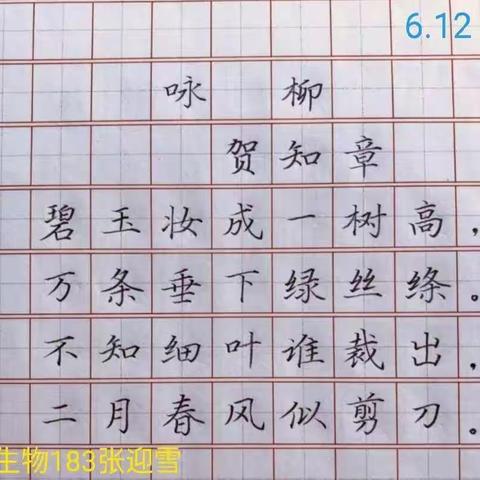 6.12
咏 柳
贺知章
碧玉妆成一树高，
万条垂下绿丝绦。
不知细叶谁裁出，
二月春风似剪刀。
生物183张迎雪